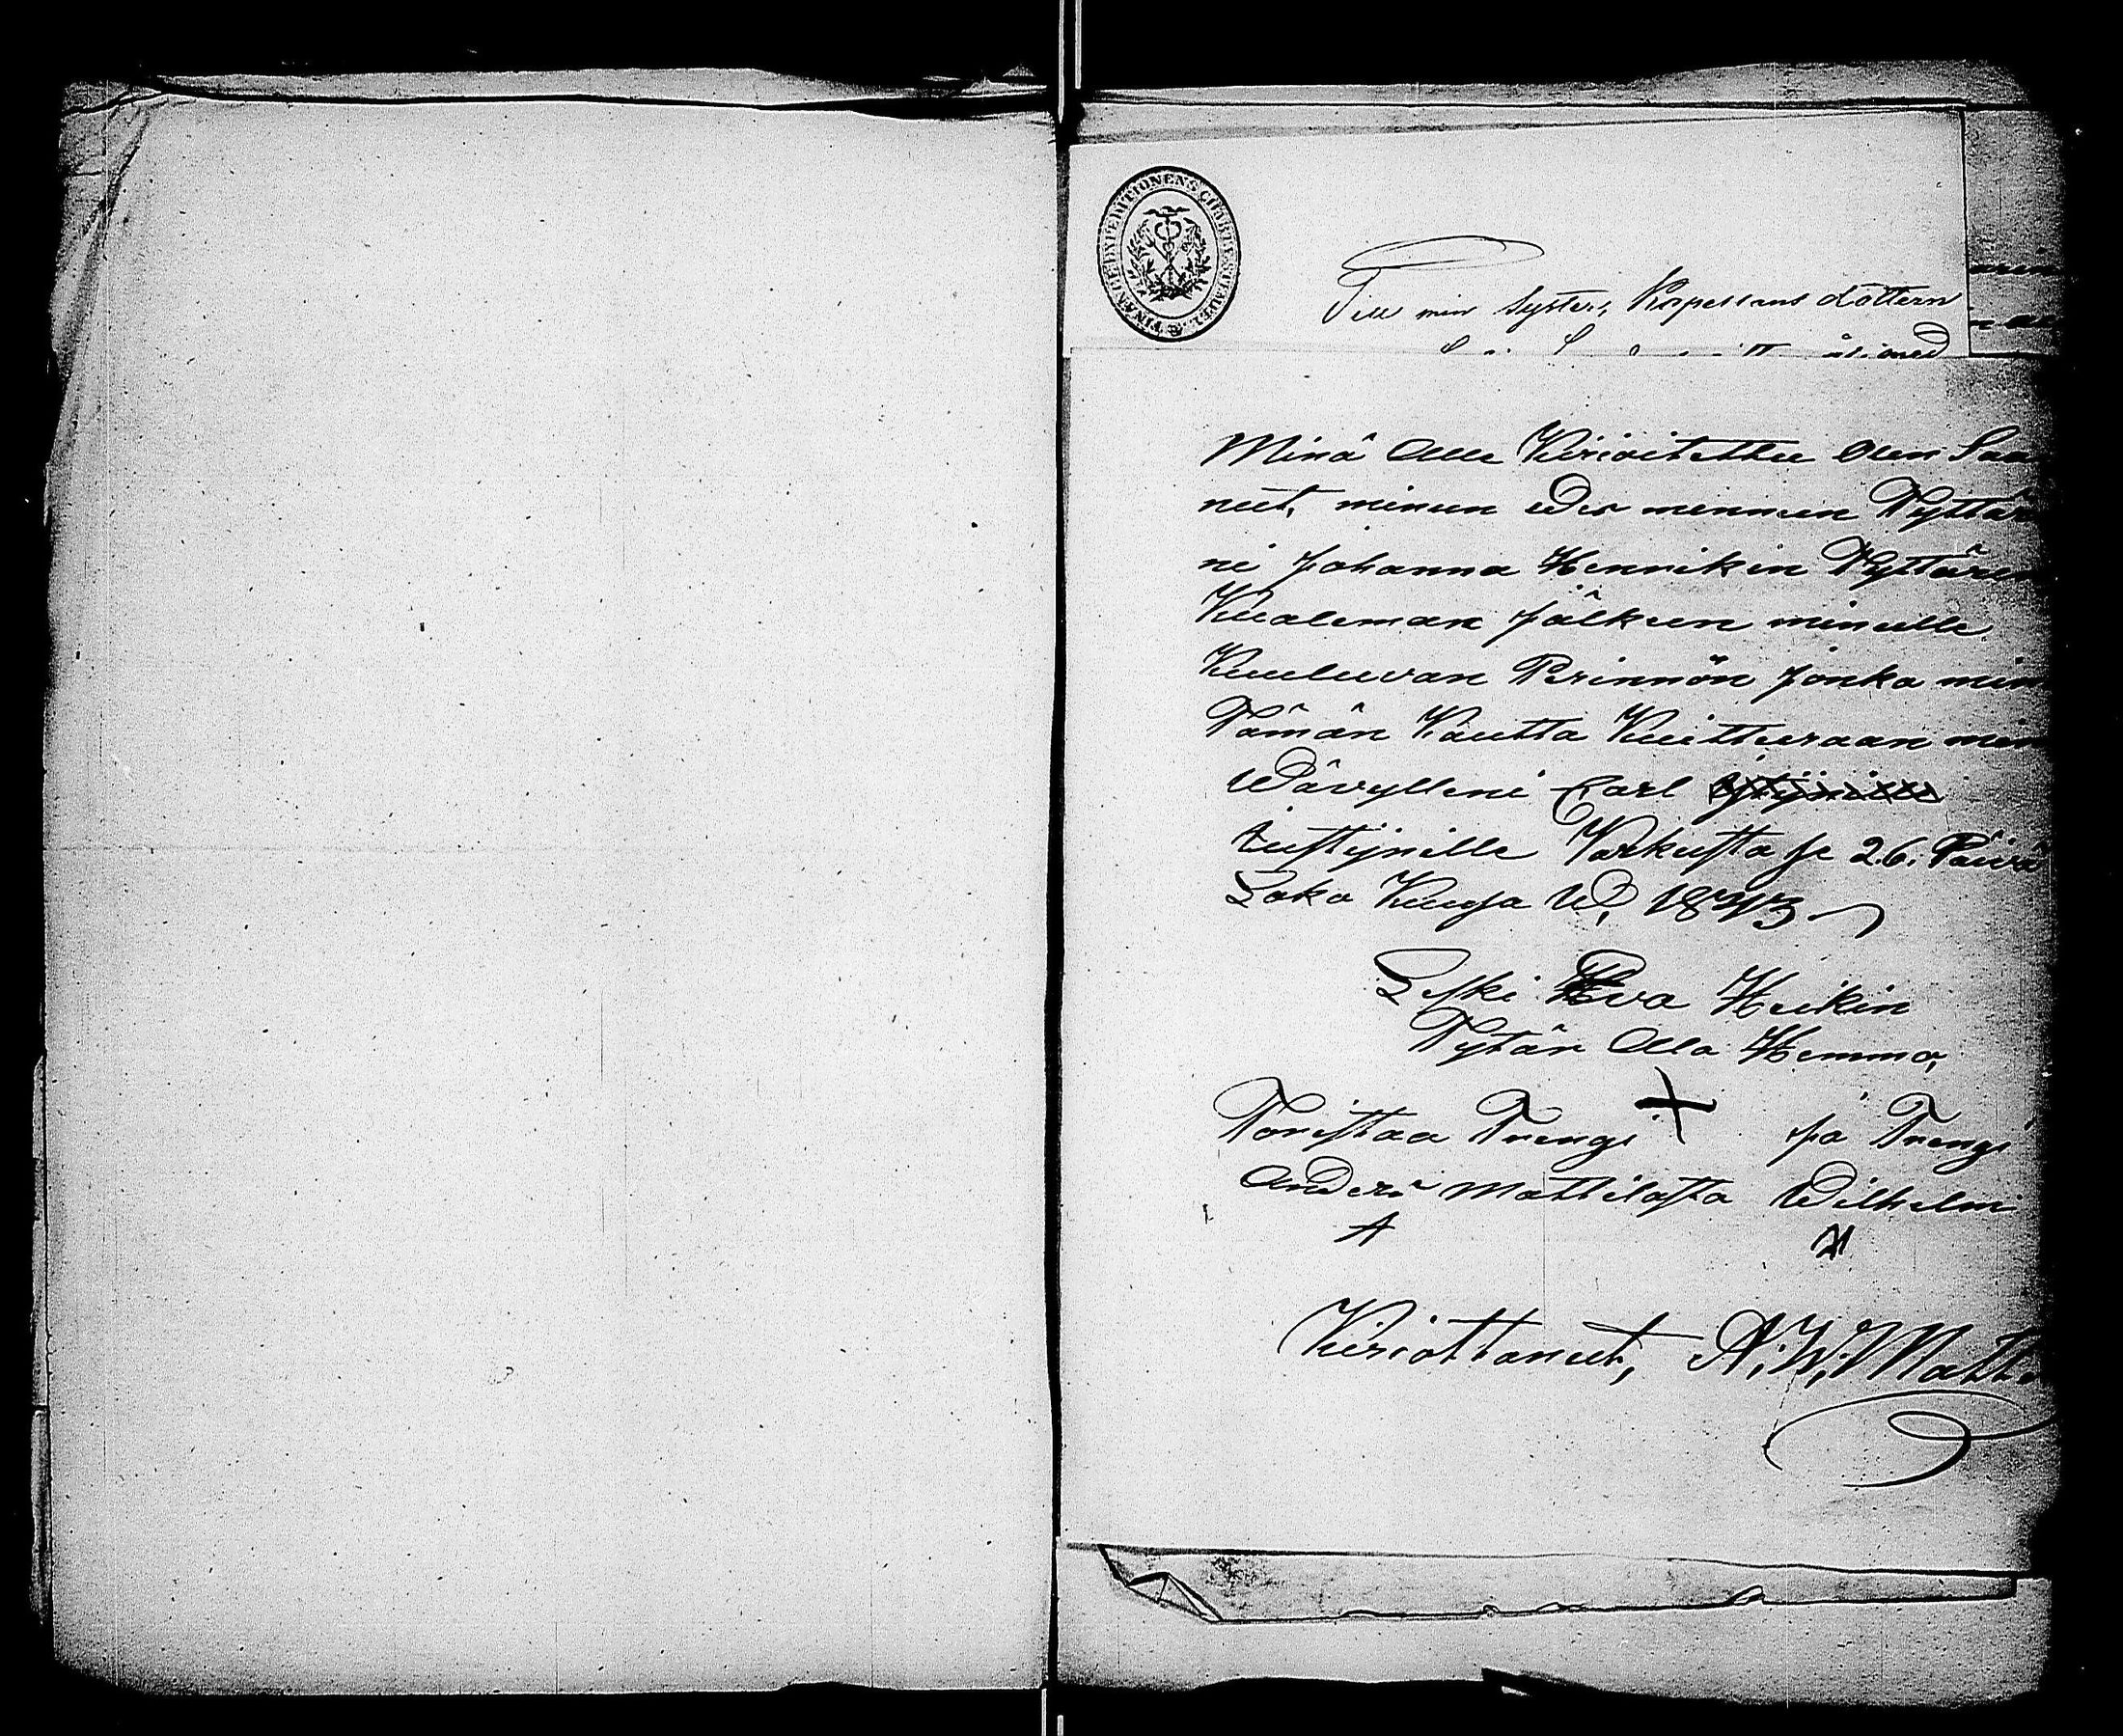 FINANCE EXPEDITIONENS CHARTÆ
Till min Syster, Kapellans dottern
Minä Alla Kirioitettu Olen Saa
nut, minun edes mennen Tyttäre
ni Johanna Hennrikin Tyttären
Kualeman jälkeen minulle
Kuuluvan Perinnön jonka min
Tämän Kautta Kuitturaan min
Wävylleni Carl
tustijnille Varkusta se 26. Päivä
Loka Kuusa W, 1843
Leski Eva Heikin
Tytär Alla Hemma,
Toristaa Trengi ja Trengi
Anders Mattilasta Wilhelmi
A H
Kiriottanut, A. W. Matt